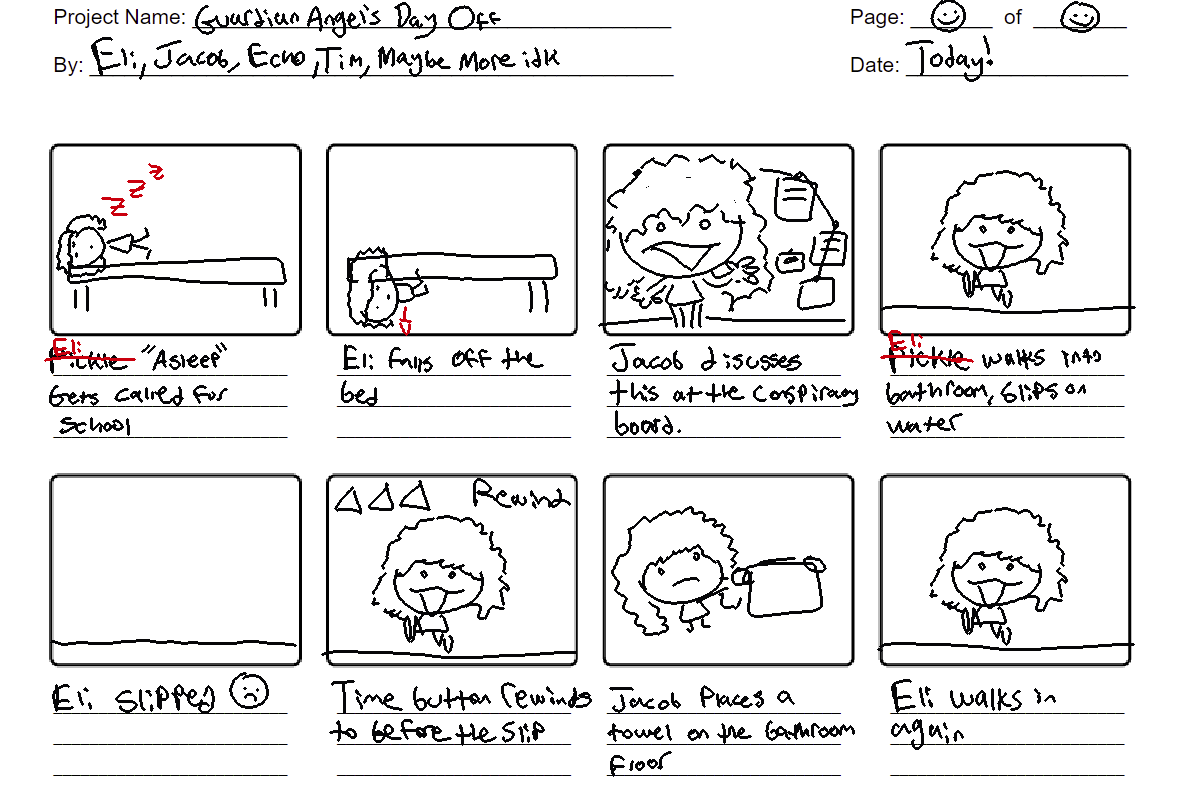 Project Name: Guardian Angel's Day Off
Page: of
By: Eli, Jacob, Echo, Tim, Maybe More idk
Date: Today!
z z z
Eli Pickle "Asleep"
Gets called for
School
Eli falls off the
bed
Jacob discusses
this at the conspiracy
board.
Eli Pickle walks into
bathroom, slips on
water
Rewind
Eli slipped
Time button rewinds
to before the slip
Jacob Places a
towel on the bathroom
floor
Eli walks in
again